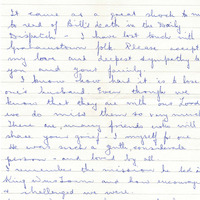 It came as a great shock to me
to read of Bill's death in the Daily
Dispatch - I have lost touch with
Grahamstown folk. Please accept
my love and deepest sympathy to
you and your family.
I know how hard it is to lose
one's husband. Even though we
know that they are with our Lord
we do miss them so very much.
There are many friends who will
share your grief - I myself for one.
He was such a gentle, considerate
person - and loved by all.
I remember the mission he led in
King William's Town and how encouraged
& challenged we were.